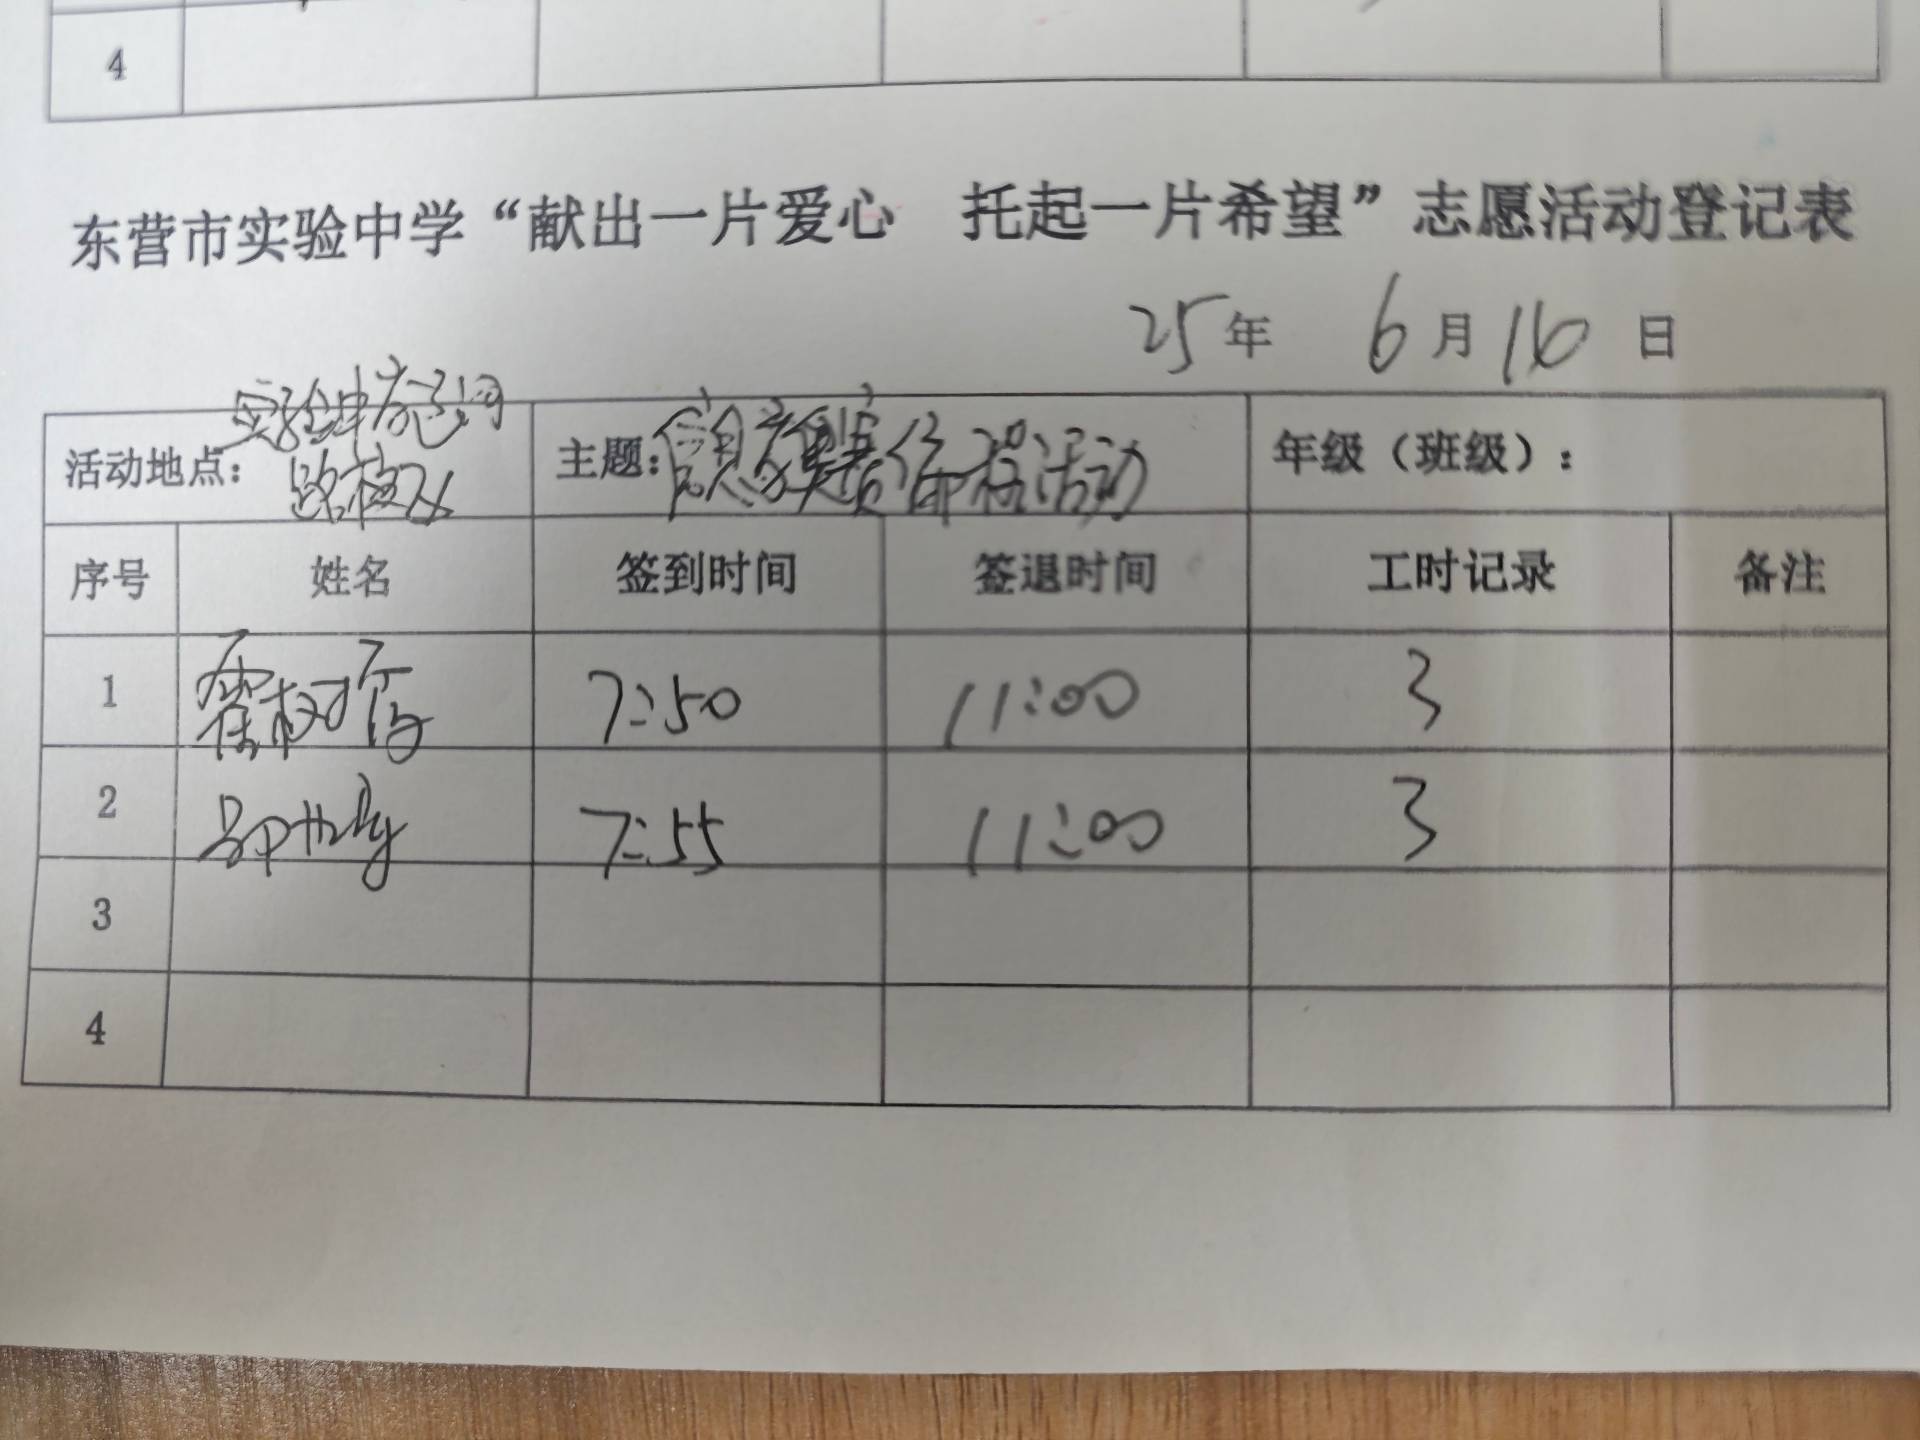 4
东营市实验中学“献出一片爱心 托起一片希望”志愿活动登记表
25年 6月16日
活动地点： 实验中学 路校区 主题： 活动 年级（班级）：
序号 姓名 签到时间 签退时间 工时记录 备注
1 霍树 7:50 11:00 3
2 7:55 11:00 3
3
4